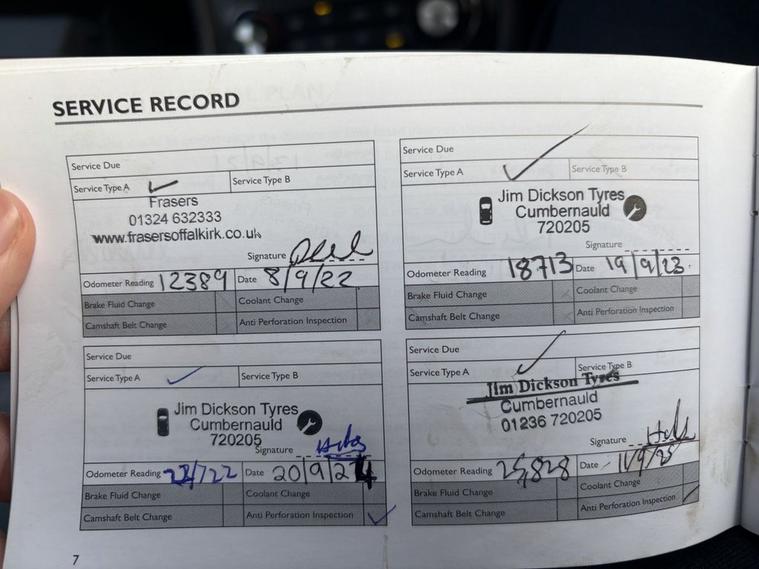 SERVICE RECORD
Service Due
Service Type A ✓ Service Type B
Frasers
01324 632333
www.frasersoffalkirk.co.uk
Signature
Odometer Reading 12389 Date 8/9/22
Brake Fluid Change Coolant Change
Camshaft Belt Change Anti Perforation Inspection
Service Due
Service Type A ✓ Service Type B
Jim Dickson Tyres
Cumbernauld
720205
Signature
Odometer Reading 18713 Date 19/9/23
Brake Fluid Change Coolant Change
Camshaft Belt Change Anti Perforation Inspection
Service Due
Service Type A ✓ Service Type B
Jim Dickson Tyres
Cumbernauld
720205
Signature
Odometer Reading Date 20/9/24
Brake Fluid Change Coolant Change
Camshaft Belt Change Anti Perforation Inspection ✓
Service Due
Service Type A ✓ Service Type B
Jim Dickson Tyres
Cumbernauld
01236 720205
Signature
Odometer Reading Date 11/9/25
Brake Fluid Change Coolant Change
Camshaft Belt Change Anti Perforation Inspection
7